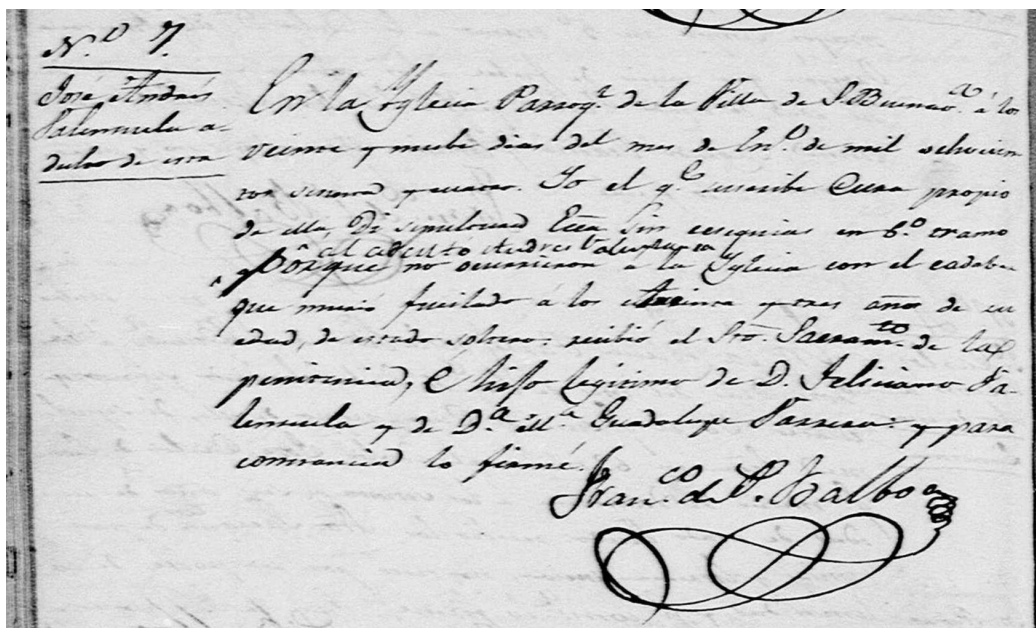 N.º 7.
José Andrés
Valensuela a-
dulto de esta
En la Yglecia Parroq.l de la Villa de S. Buenav.ra á los
veinte y nuebe dias del mes de En.º de mil ochocien
tos sesenta y cuatro. Yo el q.e suscribe Cura propio
de ella, Di sepultura Ecca sin ecsequias en 6.º tramo
al adulto Andres Valensuela
porque no ocurrieron á la Yglecia con el cadaber
que murió fucilado á los treinta y tres años de su
edad, de estado soltero: recibió el Sto. Sacram.to de la
penitencia, é hijo legitimo de D. Feliciano Va-
lensuela y de D.a M.a Guadalupe Barrera: y para
constancia lo firmé.
Fran.co de P. Balboa